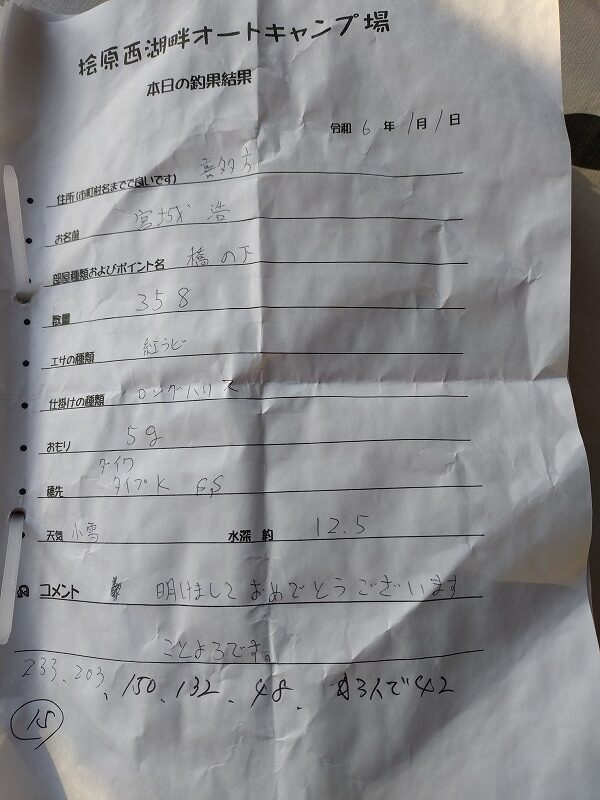 桧原西湖畔オートキャンプ場
本日の釣果結果
令和 6 年 1月 1日
住所(市町村名までで良いです) 喜多方
お名前 宮城 浩
部屋種類およびポイント名 橋の下
数量 358
エサの種類 紅ラビ
仕掛けの種類 ロングハリス
おもり 5g
穂先 ダイワ
タイプK
天気 小雪 水深 約 12.5
コメント 明けましておめでとうございます
ことよろです。
233、203、150、132、48、3人で42
15